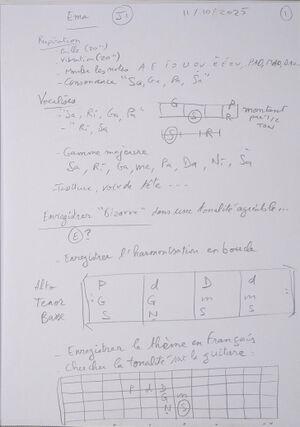 Ema J1 11/10/2025 1
Respiration
- Bulle (20")
- Vibration (20")
- Monter les notes A E I O U OU
- Consonance "Sa, Ga, Pa, Ṡa"
Vocalises
- "Sa, Ri, Ga, Pa"
G P
R
montant par 1/2 ton
- "Ri, Sa
S R
S
- Gamme majeure
Sa, Ri, Ga, me, Pa, Da, Ni, Ṡa
- Tessiture, voix de tête ...
Enregistrer "Bizarre" dans une tonalité agréable...
E ?
- Enregistrer l'harmonisation en boucle
Alto P d D d
Tenor G G m m
Basse S N S S
- Enregistrer le thème en Français
- Chercher la tonalité sur la guitare :
P d D
G m
N S